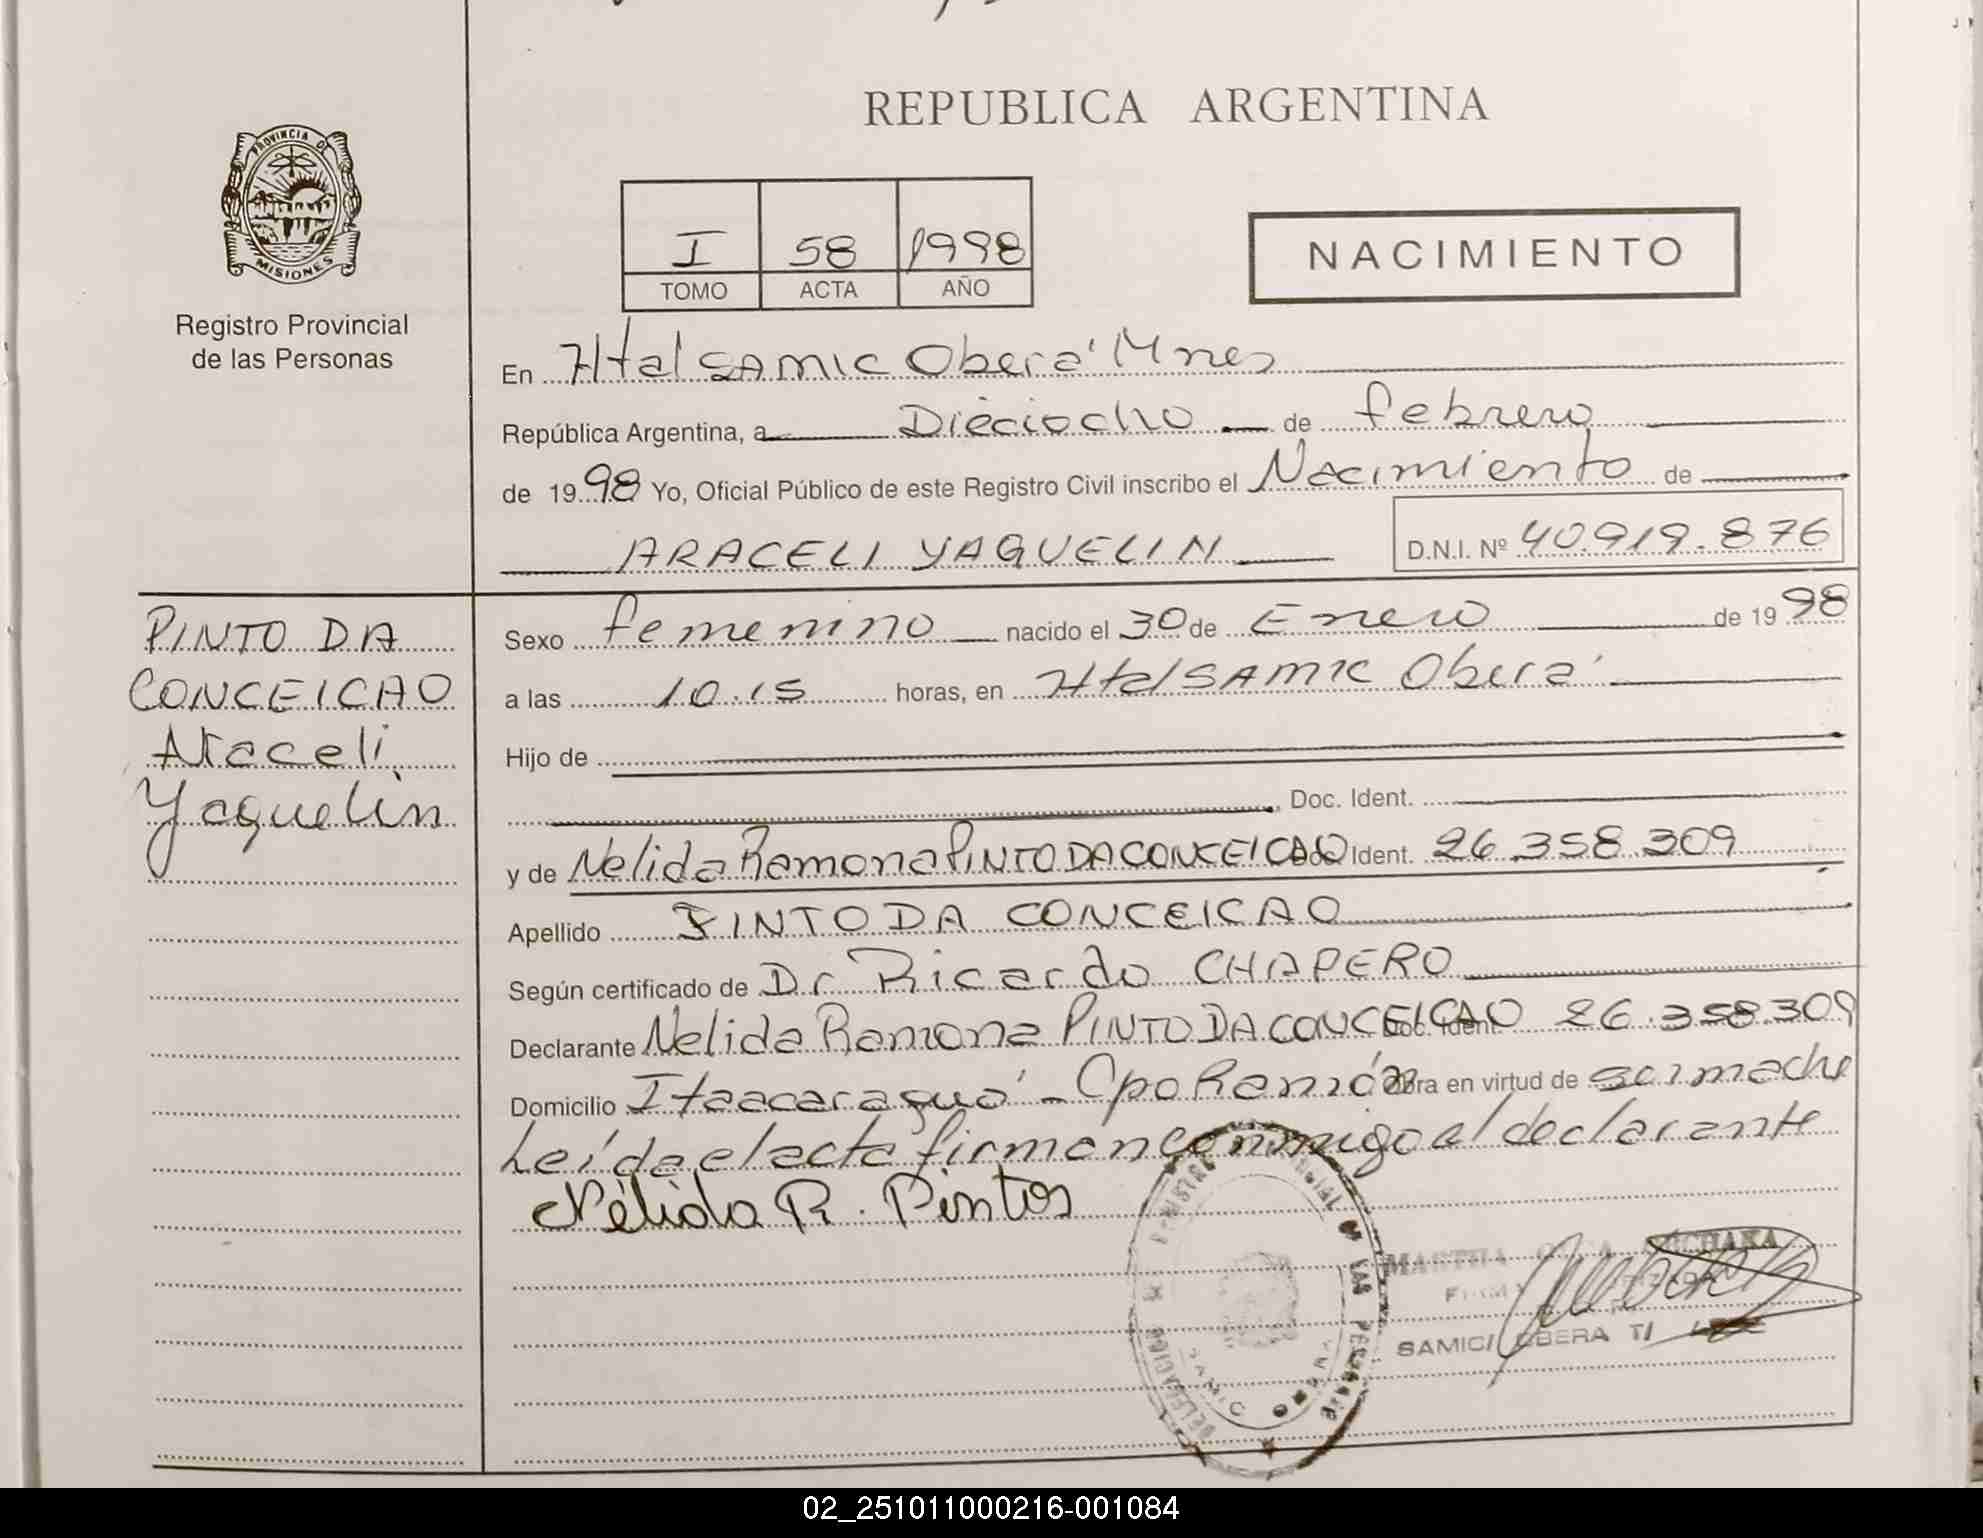 REPUBLICA ARGENTINA
PROVINCIA D
MISIONES
Registro Provincial
de las Personas
I 58 1998
TOMO ACTA AÑO
NACIMIENTO
En Htal SAMIC Oberá Mnes
República Argentina, a Dieciocho de febrero
de 1998 Yo, Oficial Público de este Registro Civil inscribo el Nacimiento de
ARACELI YAQUELIN D.N.I. Nº 40.919.876
PINTO DA
CONCEICAO
Araceli
Yaquelin
Sexo femenino nacido el 30 de Enero de 1998
a las 10.15 horas, en Htal SAMIC Oberá
Hijo de
Doc. Ident.
y de Nelida Ramona PINTO DA CONCEICAO Doc. Ident. 26.358.309
Apellido PINTO DA CONCEICAO
Según certificado de Dr Ricardo CHAPERO
Declarante Nelida Ramona PINTO DA CONCEICAO Doc. Ident. 26.358.309
Domicilio Itaacaraguá - Cpo Ramón Obra en virtud de ser madre
Leída el acta firman conmigo el declarante
Nélida R. Pintos
MARTHA
SAMIC/ OBERA T/
DELEGACION
LAS
SAMIC
02_251011000216-001084